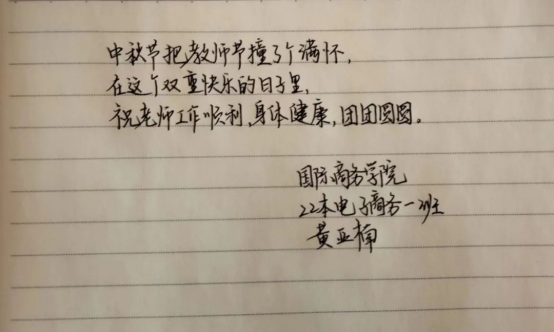 中秋节把教师节撞了个满怀，
在这个双重快乐的日子里，
祝老师工作顺利，身体健康，团团圆圆。
国际商务学院
22本电子商务一班
黄亚楠